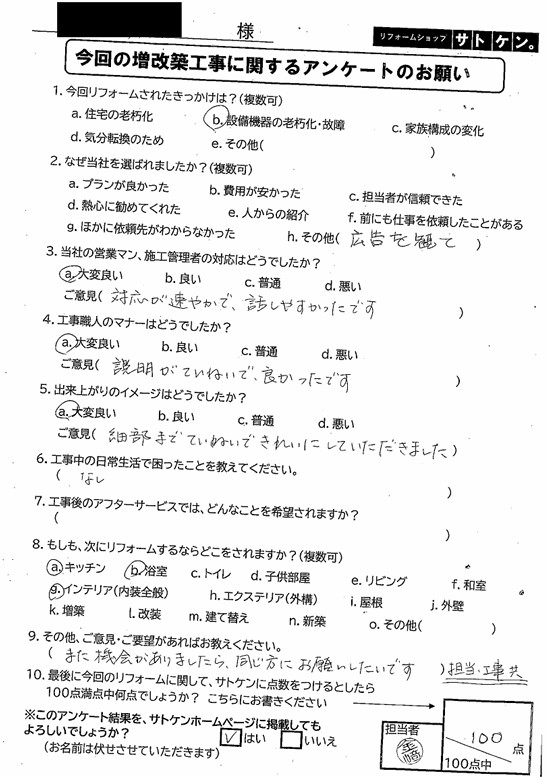 様
リフォームショップ サトケン。
今回の増改築工事に関するアンケートのお願い
1. 今回リフォームされたきっかけは?(複数可)
a. 住宅の老朽化 b. 設備機器の老朽化・故障 c. 家族構成の変化
d. 気分転換のため e. その他( )
2. なぜ当社を選ばれましたか?(複数可)
a. プランが良かった b. 費用が安かった c. 担当者が信頼できた
d. 熱心に勧めてくれた e. 人からの紹介 f. 前にも仕事を依頼したことがある
g. ほかに依頼先がわからなかった h. その他( 広告を観て )
3. 当社の営業マン、施工管理者の対応はどうでしたか?
a. 大変良い b. 良い c. 普通 d. 悪い
ご意見( 対応が速やかで、話しやすかったです )
4. 工事職人のマナーはどうでしたか?
a. 大変良い b. 良い c. 普通 d. 悪い
ご意見( 説明がていねいで、良かったです )
5. 出来上がりのイメージはどうでしたか?
a. 大変良い b. 良い c. 普通 d. 悪い
ご意見( 細部までていねいできれいにしていただきました )
6. 工事中の日常生活で困ったことを教えてください。
( なし )
7. 工事後のアフターサービスでは、どんなことを希望されますか?
( )
8. もしも、次にリフォームするならどこをされますか?(複数可)
a. キッチン b. 浴室 c. トイレ d. 子供部屋 e. リビング f. 和室
g. インテリア(内装全般) h. エクステリア(外構) i. 屋根 j. 外壁
k. 増築 l. 改装 m. 建て替え n. 新築 o. その他( )
9. その他、ご意見・ご要望があればお教えください。
( また機会がありましたら、同じ方にお願いしたいです ) 担当・工事共
10. 最後に今回のリフォームに関して、サトケンに点数をつけるとしたら
100点満点中何点でしょうか? こちらにお書きください
※このアンケート結果を、サトケンホームページに掲載しても
よろしいでしょうか? ✓はい いいえ
(お名前は伏せさせていただきます)
担当者
100 点
100点中